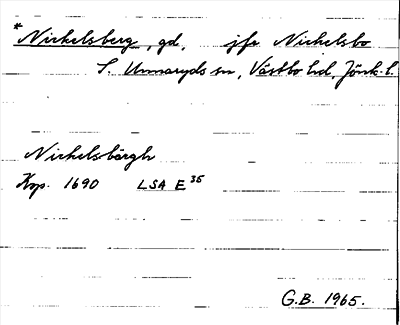 *Nickelsberg, gd, jfr Nickelsbo
S. Unnaryds sn, Västbo hd, Jönk. l.
Nickelsbärgh
Kop. 1690 LSA E 35
G.B. 1965.